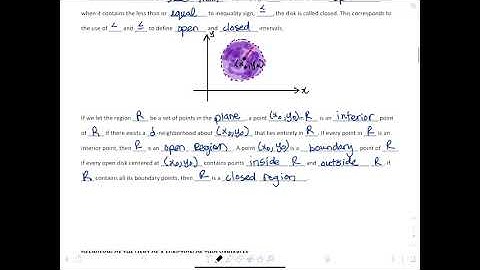 when it contains the less than or equal to inequality sign, ≤, the disk is called closed. This corresponds to
the use of < and ≤ to define open and closed intervals.
y
(x₀,y₀)
x
If we let the region R be a set of points in the plane, a point (x₀,y₀) in R is an interior point
of R if there exists a δ-neighborhood about (x₀,y₀) that lies entirely in R. If every point in R is an
interior point, then R is an open region. A point (x₀,y₀) is a boundary point of R
if every open disk centered at (x₀,y₀) contains points inside R and outside R. If
R contains all its boundary points, then R is a closed region.